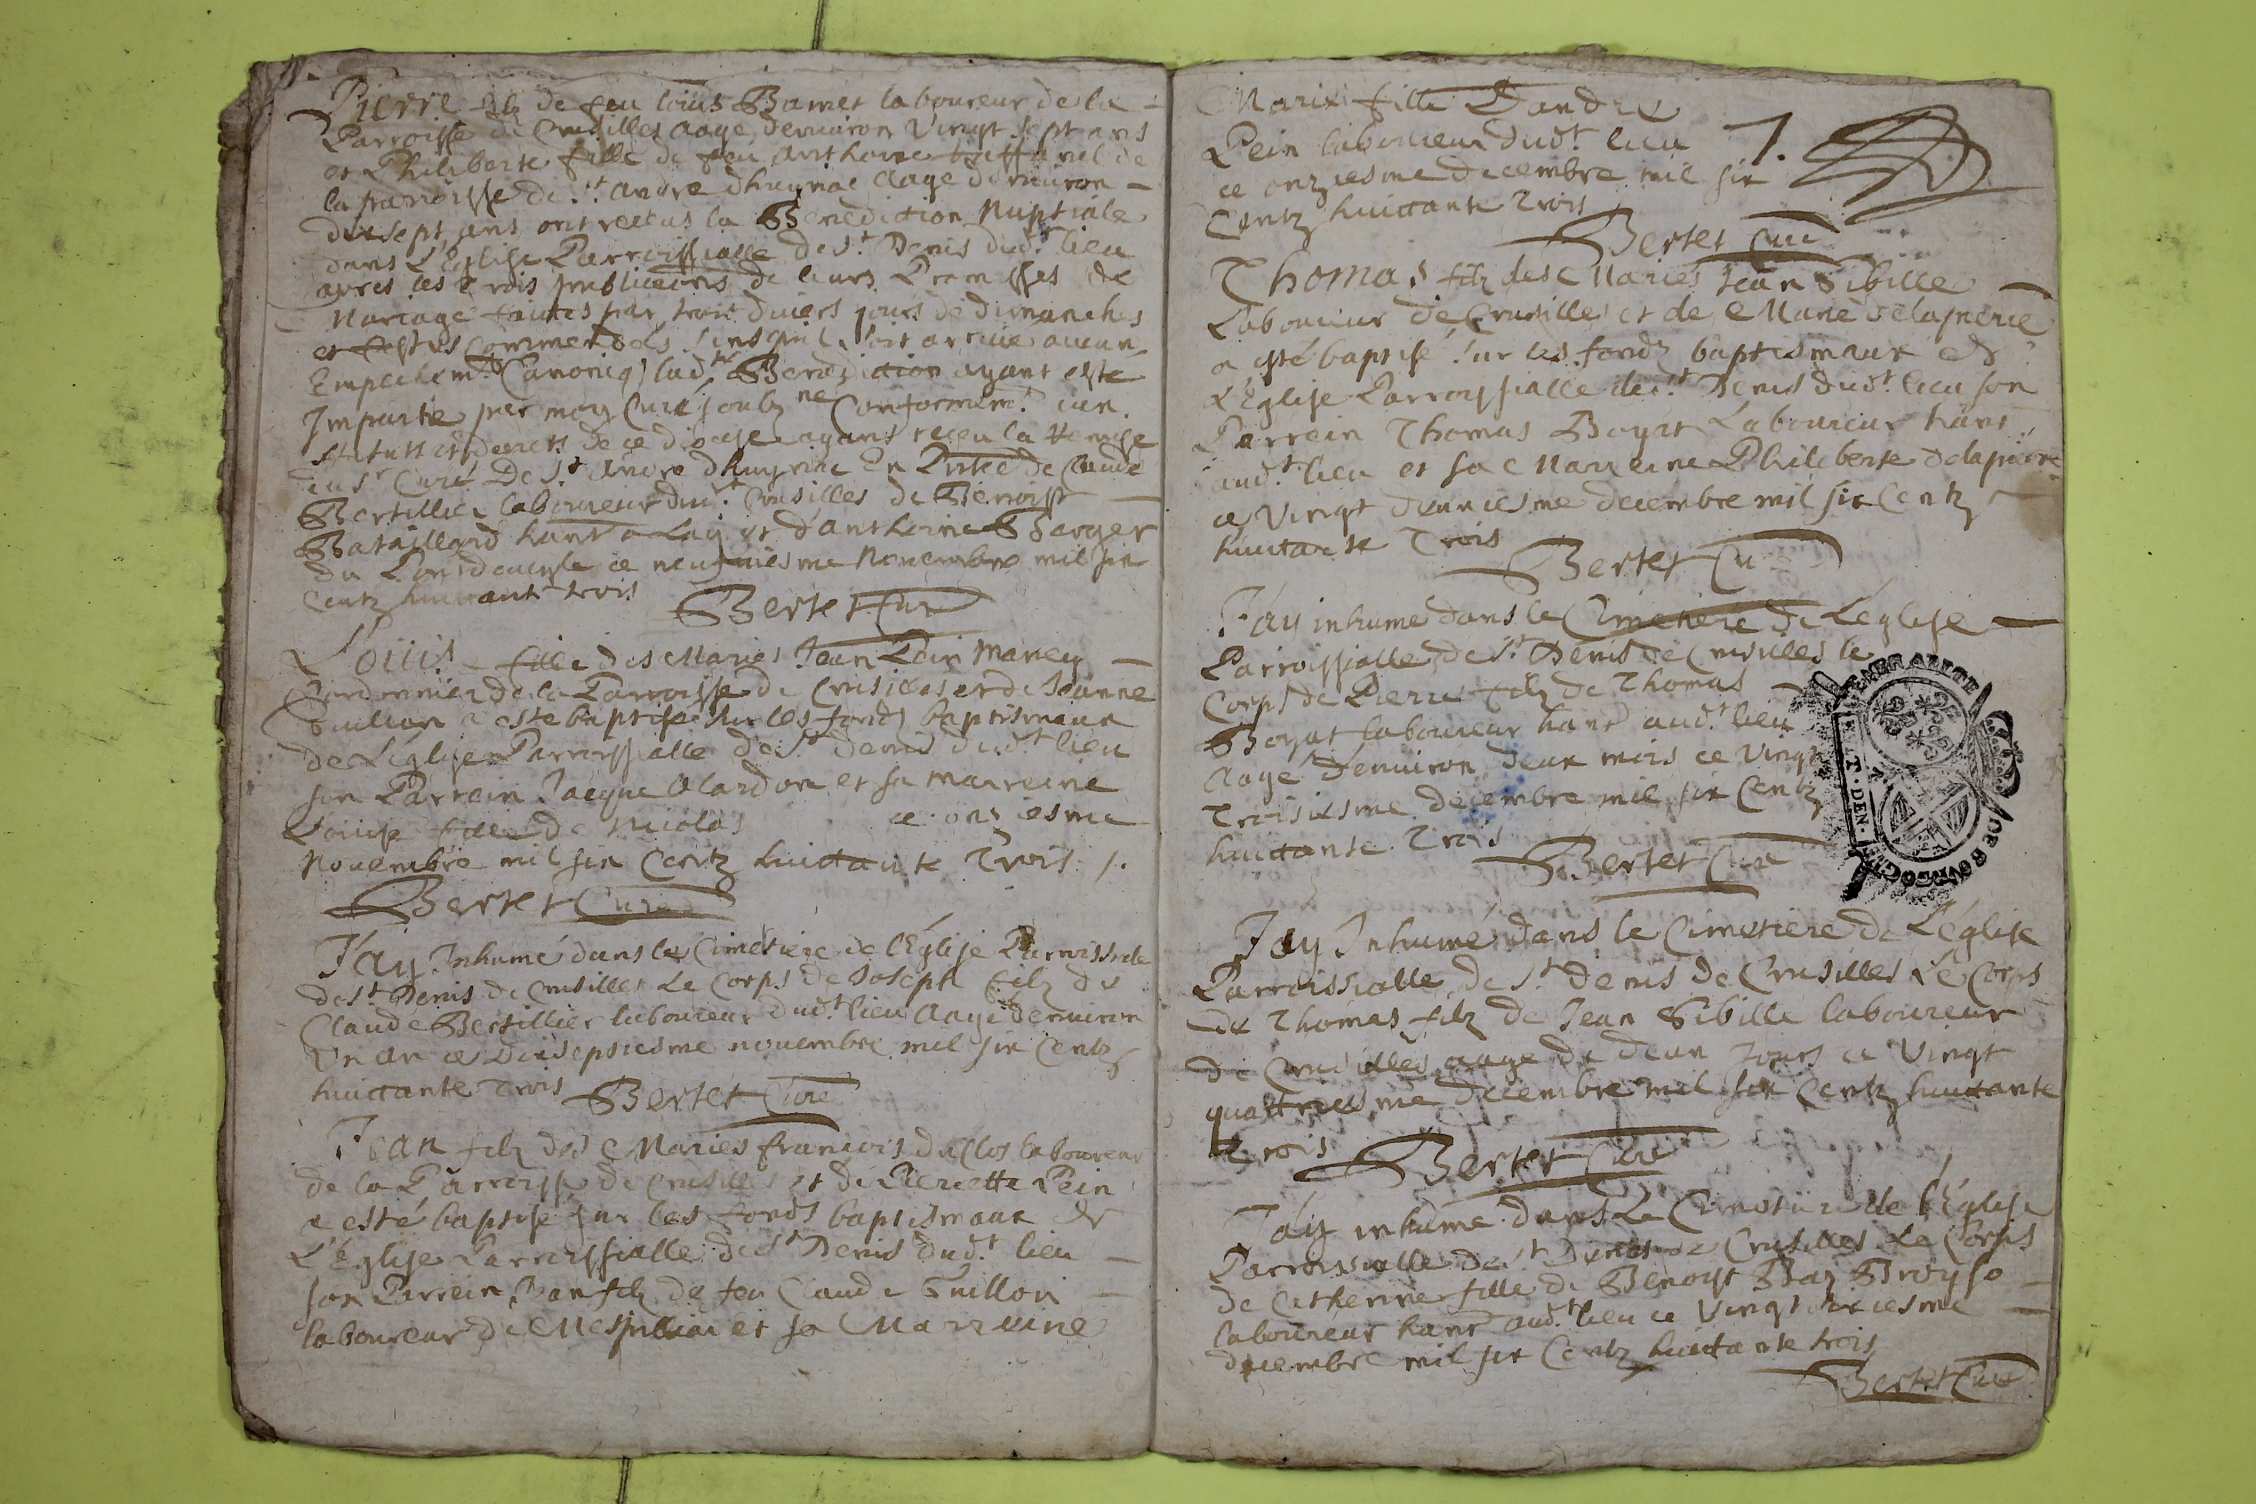 Pierre filz de feu louis Bamet laboureur de la
Parroisse de Crusilles aage denuiron Vingt sept ans
et Philiberte fille de feu Anthoine de
la parroisse de St. Andre dhuyriac Aage denuiron
dixsept ans ont receus la Benediction Nuptiale
dans L'Eglise Parroissialle de St. Denis dud.t lieu
apres les trois publications de leurs Promesses de
Mariage faittes par trois diuers jours de dimanches
et festes commendés sans quil soit arriué aucun
Empechem.t Canoniq lad.te Benediction ayant esté
Impartie par moy Curé soubz.né Conformem.t aux
statuts et decrets de ce diocese ayant receu la Remise
du Sr Curé De St. André dhuyriac En Pntce de Claude
Bertillier laboureur dud.t Crusilles de Benoist
Bataillard hant a Lay et d'anthoine Berger
du Pontdeuesle ce neufuiesme Nouembre mil six
Centz huictante trois
Bertet Curé
Louise fille des Mariés Jean Loin Maney
Cordonnier de la Parroisse de Crusilles et de Jeanne
Guillon a esté baptisé sur les fondz baptismaux
de L'eglise Parroissialle de St denis dud.t lieu
son Parrein Jacque Alardon et sa Marreine
Louise fille de Nicolas ce onziesme
Nouembre mil six Centz huictante Trois /.
Bertet Curé
J'ay Inhumé dans le Cimetiere de l'Eglise Parroissiale
de St Denis de Crusilles Le Corps de Joseph filz de
Claude Bertillier laboureur dud.t lieu Aagé denuiron
Un an ce dixseptiesme nouembre mil six Centz
huictante Trois Bertet Curé
Jean filz des Mariés françois duClos laboureur
de la Parroisse de Crusilles et de Pierrette Pein
a esté baptisé sur les fonds baptismaux de
L'Eglise Parroissialle de St Denis dud.t lieu
son Parrein Jean filz de feu Claude Guillon
laboureur de Mespilliat et sa Marreine
Marie fille D'andre
Pein laboureur dud.t lieu 7.
ce onziesme decembre mil six
Centz huictante Trois
Bertet Curé
Thomas filz des Mariés Jean Sibille
Laboureur de Crusilles et de Marie delapierre
a esté baptisé sur les fondz baptismaux de
L'Eglise Parroissialle de St. Denis dud.t lieu son
Parrein Thomas Boyat Laboureur hant
aud.t lieu et sa Marreine Philiberte delapierre
ce Vingt deuxiesme decembre mil six Centz
huictante Trois
Bertet Curé
J'ay inhumé dans le Cimetiere de L'eglise
Parroissialle de St Denis de Crusilles le
Corps de Pierre filz de Thomas
Boyat laboureur hant aud.t lieu
Aagé denuiron deux mois ce Vingt
Troisiesme decembre mil six Centz
huictante Trois
Bertet Curé
GENERALITE DE BOURGOGNE
J'ay Inhumé dans le Cimetiere de L'église
Parroissialle de St denis de Crusilles Le Corps
de Thomas filz de Jean Sibille laboureur
de Crusilles aagé de deux Jours ce Vingt
quattriesme decembre mil six Centz huictante
Trois
Bertet Curé
J'ay inhumé dans Le Cimetiere de l'Eglise
Parroissialle de St Denis de Crusilles Le Corps
de Catherine fille de Benoist
laboureur hant aud.t lieu ce Vingt
decembre mil six Centz huictante trois
Bertet Curé